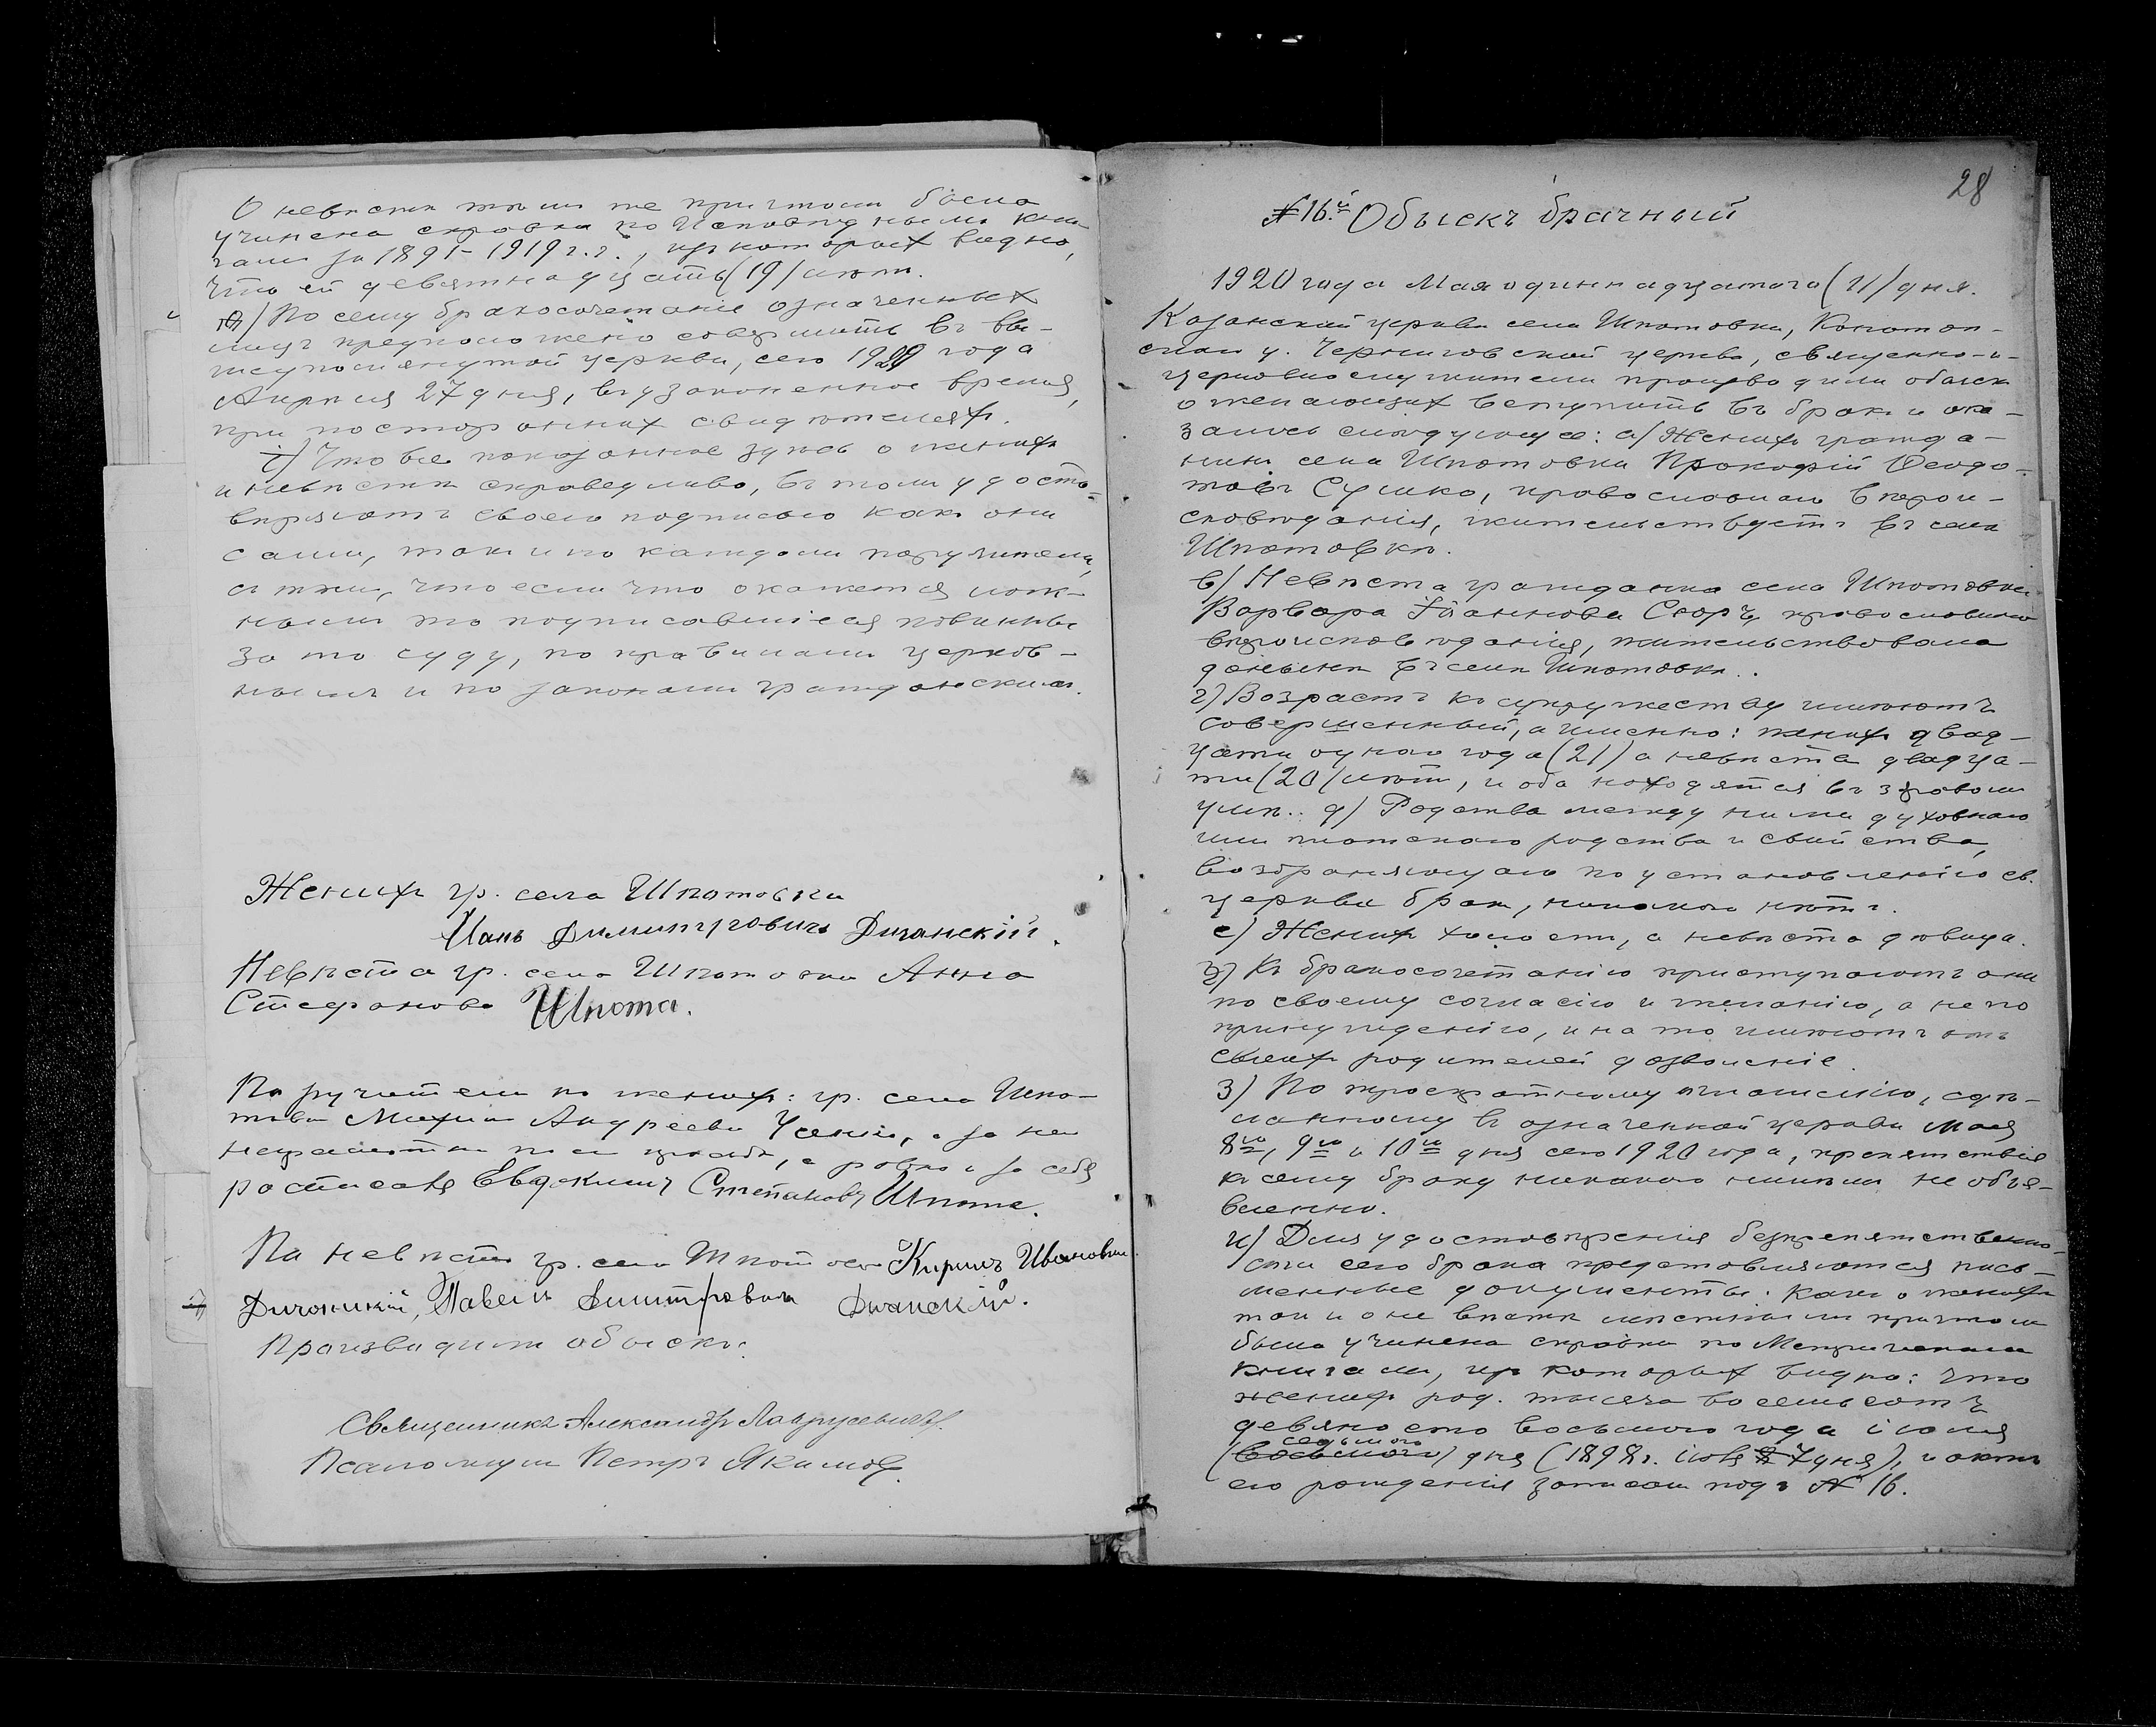 О невѣстѣ тѣмъ же причтомъ была
учинена справка по Исповѣднымъ кни-
гамъ за 1891-1919 г.г., изъ которыхъ видно,
что ей девятнадцать (19) лѣтъ.
По сему бракосочетаніе означенныхъ
лицъ предположено совершить въ вы-
шеупомянутой церкви, сего 1920 года
Апрѣля 27 дня, въ узаконенное время,
при постороннихъ свидѣтеляхъ.
і) Что все показанное здѣсь о женихѣ
и невѣстѣ справедливо, въ томъ удосто-
вѣряютъ своею подписью какъ они
сами, такъ и по каждомъ поручители,
съ тѣмъ, что если что окажется лож-
нымъ то подписавшіеся повинны
за то суду, по правиламъ церков-
нымъ и по законамъ гражданскимъ.
Женихъ гр. села Шпотовки
Димитровичъ
Невѣста гр. села Шпотовки Анна
Стефанова Шпота.
Поручители по женихѣ: гр. села Шпо-
товки Андреевъ а за не
а равно и за себя
росписался Евдокимъ Степановъ Шпота.
По невѣстѣ гр. села Шпотовки Кириллъ Ивановичъ
Павелъ Димитровичъ
Производили обыскъ:
Священникъ Александръ
Псаломщикъ Петръ Якимовъ.
28
№ 16.й Обыскъ брачный
1920 года Мая одиннадцатого (11) дня.
Казанской церкви села Шпотовки, Конотоп-
скаго у. Черниговской церкви, священно-и-
церковнослужители производили обыскъ
о желающихъ вступить въ бракъ и ока-
залось слѣдующее: а) Женихъ гражда-
нинъ села Шпотовки Прокофій Ѳеодо-
товъ Сушко, православнаго вѣрои-
сповѣданія, жительствуетъ въ селѣ
Шпотовкѣ.
в) Невѣста гражданка села Шпотовки
Варвара Іоаннова православнаго
вѣроисповѣданія, жительствовала
донынѣ въ селѣ Шпотовкѣ.
г) Возрастъ къ супружеству имѣютъ
совершенный, а именно: женихъ двад-
цати одного года (21) а невѣста двадца-
ти (20) лѣтъ, и оба находятся въ здравомъ
умѣ. д) Родства между ними духовнаго
или плотскаго родства и свойства,
возбраняющаго по установленію св.
церкви бракъ, никакого нѣтъ.
е) Женихъ холостъ, а невѣста дѣвица.
Къ бракосочетанію приступаютъ они
по своему согласію и желанію, а не по
принужденію, и на то имѣютъ отъ
своихъ родителей дозволеніе.
З) По троекратному оглашенію, сдѣ-
ланному въ означенной церкви Мая
8го, 9го и 10го дня сего 1920 года, препятствія
къ сему браку никакого никѣмъ не объя-
влено.
и) Для удостовѣренія безпрепятственно-
сти сего брака представляются пись-
менные документы. Какъ о женихѣ
такъ и о невѣстѣ мѣстнымъ причтомъ
была учинена справка по Метрическимъ
книгамъ, изъ которыхъ видно: что
женихъ род. тысяча восемьсотъ
девяносто восьмого года іюля
седьмого
(восьмого) дня (1898 г. іюля 8 7 дня), и актъ
его рожденія записанъ подъ № 16.